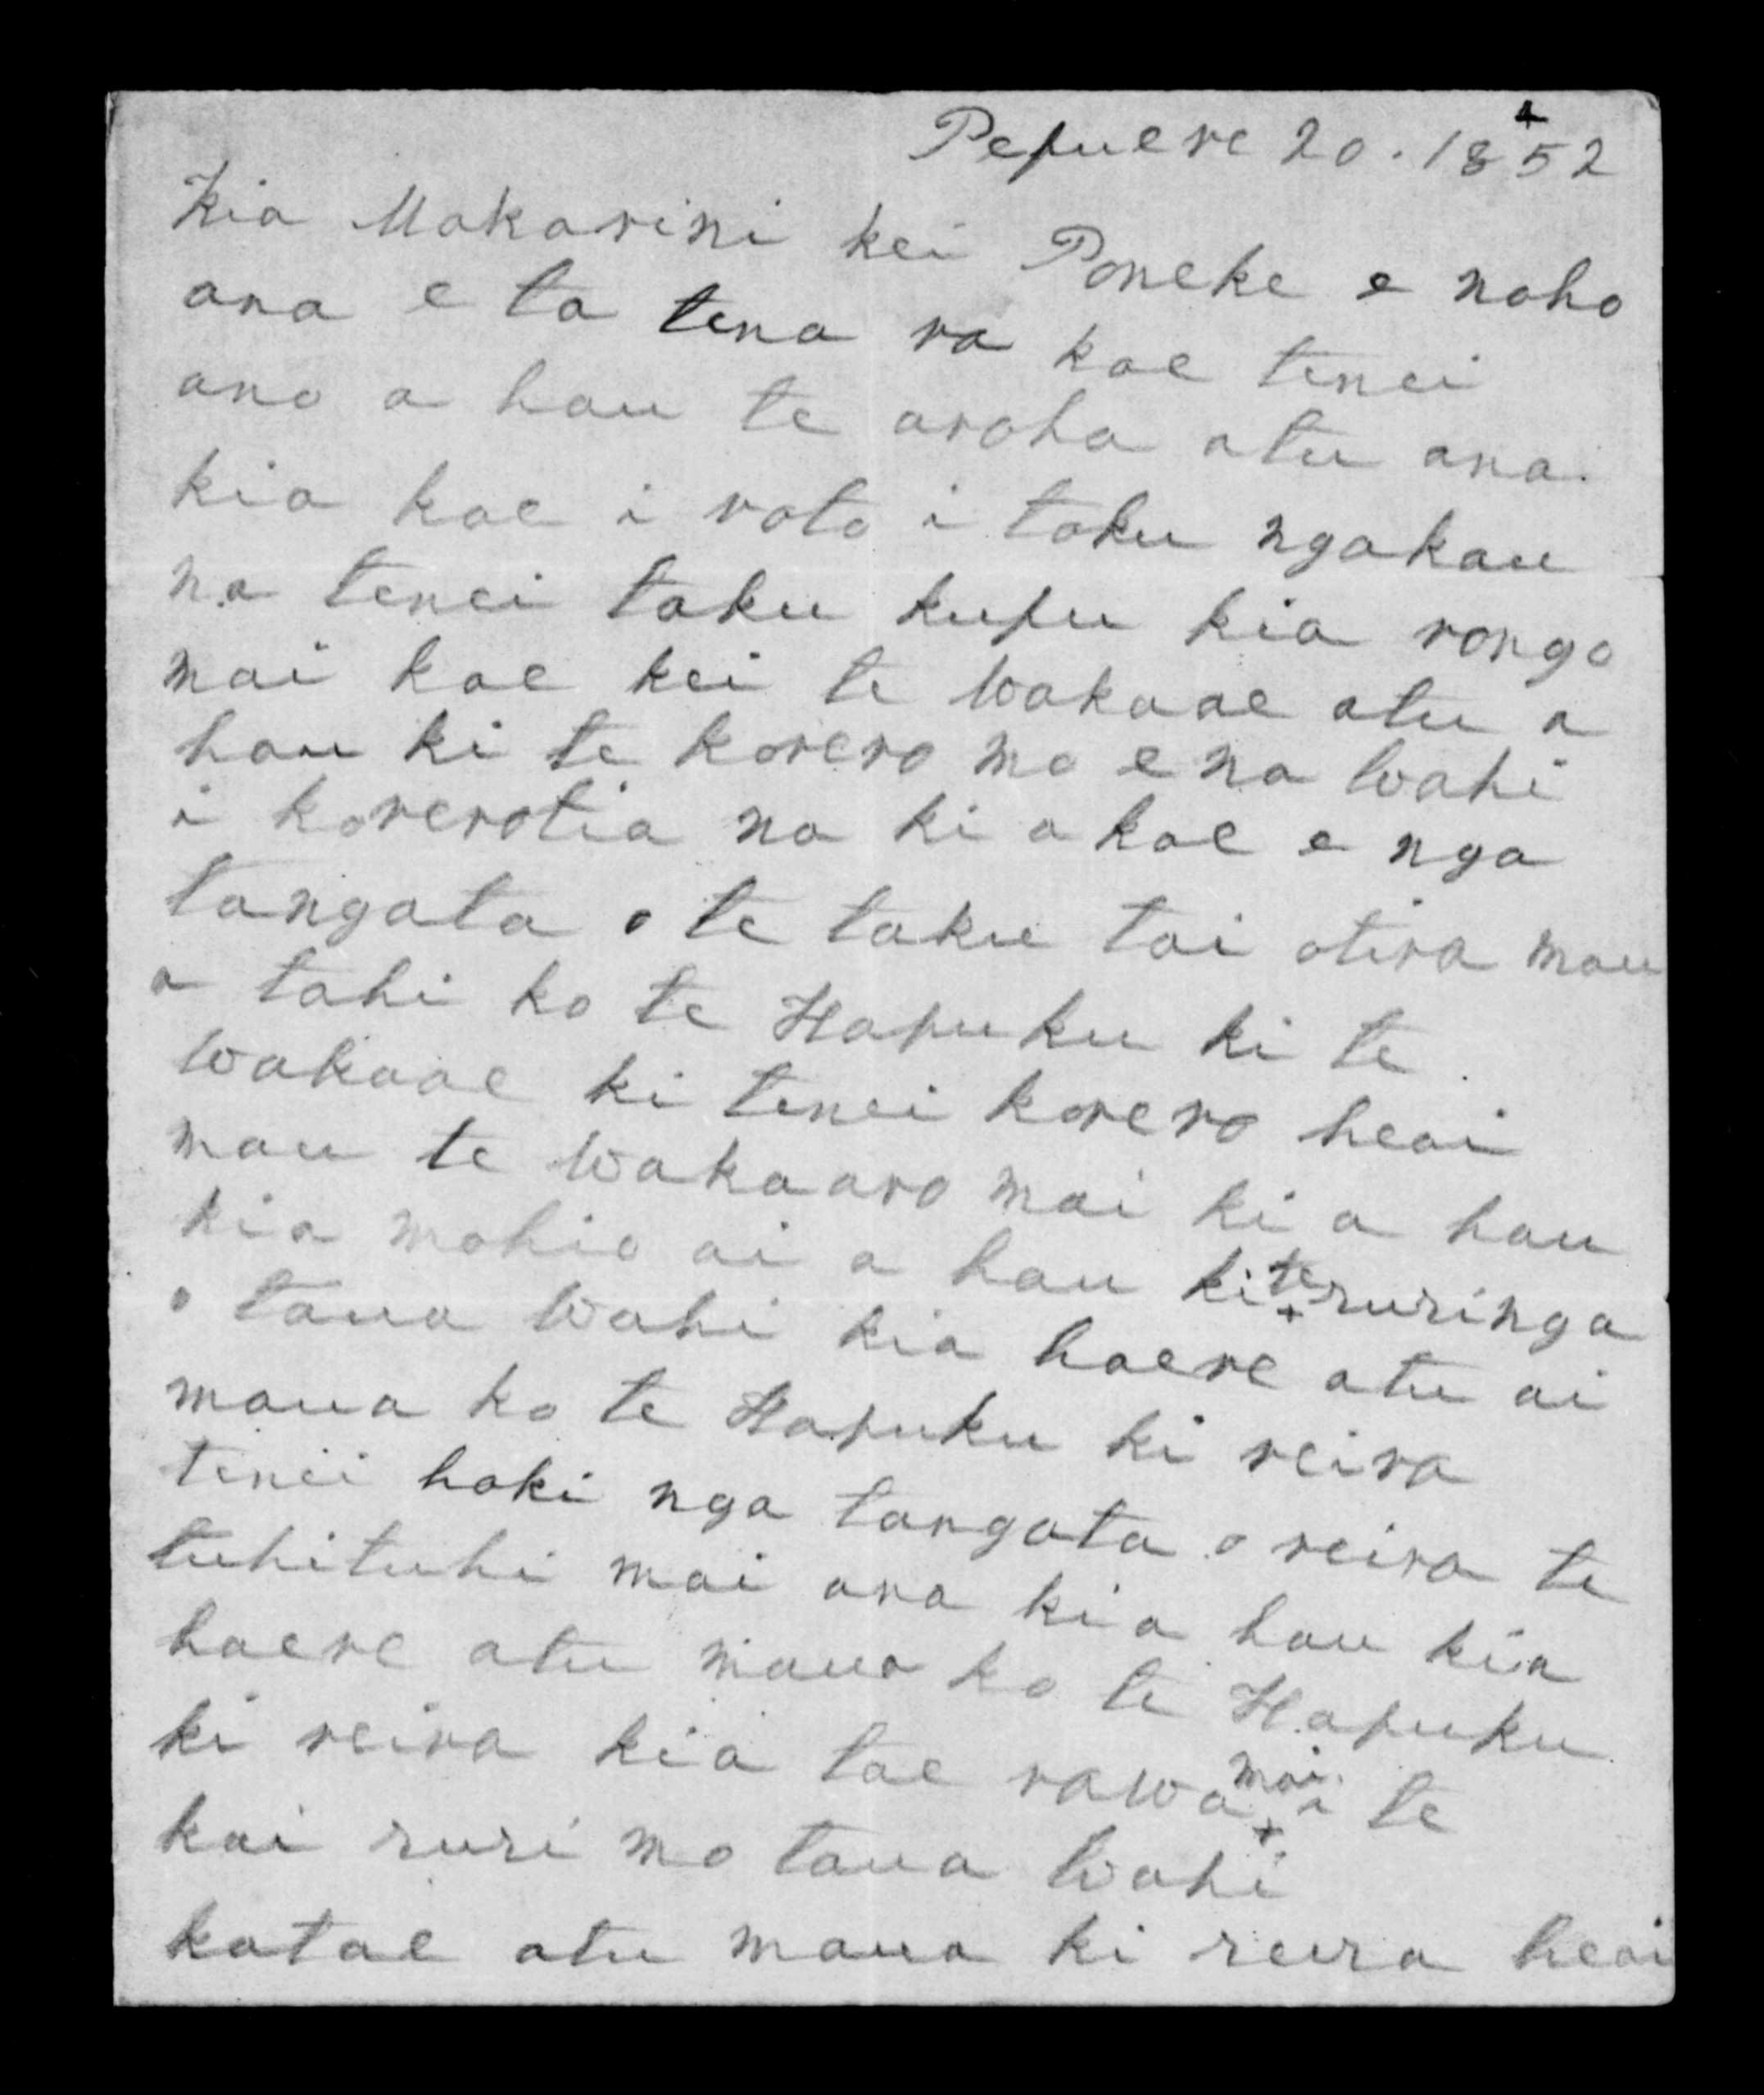 Pepuere 20. 1852
4
Kia Makarini kei Poneke e noho
ana e ta tena ra koe tenei
ano a hau te aroha atu ana.
kia koe i roto i toku ngakau
na tenei taku kupu kia rongo
mai koe kei te wakaae atu a
hau ki te korero mo e na wahi
i korerotia na ki a koe e nga
tangata o te taku tai otira mau
a tahi ko te Hapuku ki te
wakaae ki tenei korero heoi
mau te wakaaro mai ki a hau
kia mohio ai a hau ki te ruringa
o taua wahi kia haere atu ai
maua ko te Hapuku ki reira
tenei hoki nga tangata o reira te
tuhituhi mai ana kia hau kia
haere atu maua ko te Hapuku
ki reira kia tae rawa mai te
kai ruri mo taua wahi
katae atu maua ki reira heoi